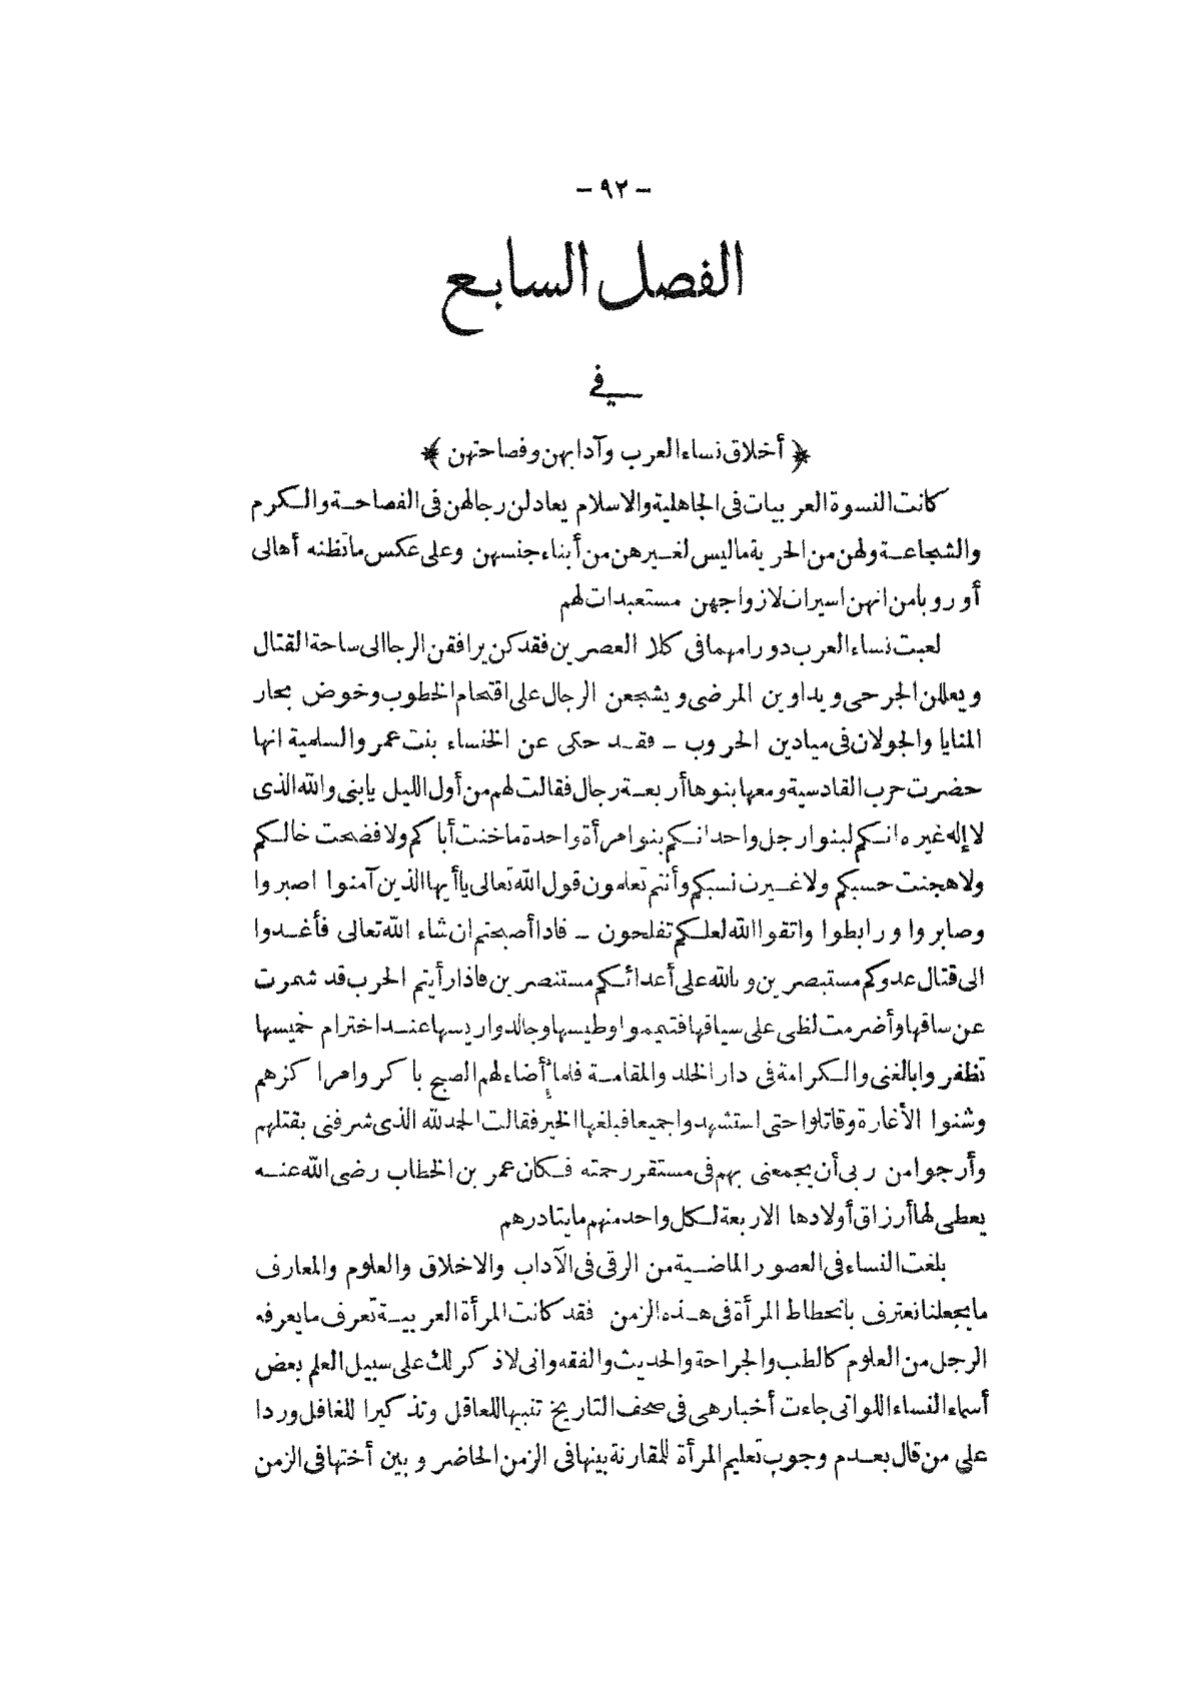 - ٩٢ -
الفصل السابع
في
﴿ أخلاق نساء العرب وآدابهن وفصاحتهن ﴾
كانت النسوة العربيات فى الجاهلية والاسلام يعادلن رجالهن فى الفصاحة والكرم
والشجاعة ولهن من الحرية ماليس لغيرهن من أبناء جنسهن وعلى عكس ماتظنه أهالى
أوروبا من انهن اسيرات لازواجهن مستعبدات لهم
لعبت نساء العرب دورا مهما فى كلا العصرين فقد كن يرافقن الرجا الى ساحة القتال
ويعللن الجرحى ويداوين المرضى ويشجعن الرجال على اقتحام الخطوب وخوض بحار
المنايا والجولان فى ميادين الحروب - فقد حكى عن الخنساء بنت عمرو السلمية انها
حضرت حرب القادسية ومعها بنوها أربعة رجال فقالت لهم من أول الليل يابنى والله الذى
لا إله غيره انكم لبنو ارجل واحد انكم بنو امرأة واحدة ماخنت أباكم ولا فضحت خالكم
ولا هجنت حسبكم ولا غيرت نسبكم وأنتم تعلمون قول الله تعالى ياأيها الذين آمنوا اصبروا
وصابروا ورابطوا واتقوا الله لعلكم تفلحون - فاذا أصبحتم ان شاء الله تعالى فأغدوا
الى قتال عدوكم مستبصرين وبالله على أعدائكم مستنصرين فاذا رأيتم الحرب قد شمرت
عن ساقها وأضرمت لظى على سياقها فتيمموا وطيسها وجالدوا ريسها عند اخترام خميسها
تظفروا بالغنى والكرامة فى دار الخلد والمقامة فلما أضاء لهم الصبح باكروا مراكزهم
وشنوا الأغارة وقاتلوا حتى استشهدوا جميعا فبلغها الخبر فقالت الحمد لله الذى شرفنى بقتلهم
وأرجوا من ربى أن يجمعنى بهم فى مستقر رحمته فكان عمر بن الخطاب رضى الله عنه
يعطى لها أرزاق أولادها الاربعة لكل واحد منهم مايتا درهم
بلغت النساء فى العصور الماضية من الرقى فى الآداب والاخلاق والعلوم والمعارف
مايجعلنا نعترف بانحطاط المرأة فى هذه الزمن فقد كانت المرأة العربية تعرف مايعرفه
الرجل من العلوم كالطب والجراحة والحديث والفقه وانى لاذكر لك على سبيل العلم بعض
أسماء النساء اللواتى جاءت أخبارهى فى صحف التاريخ تنبيها للعاقل وتذكيرا للغافل وردا
على من قال بعدم وجوب تعليم المرأة للمقارنة بينها فى الزمن الحاضر وبين أختها فى الزمن